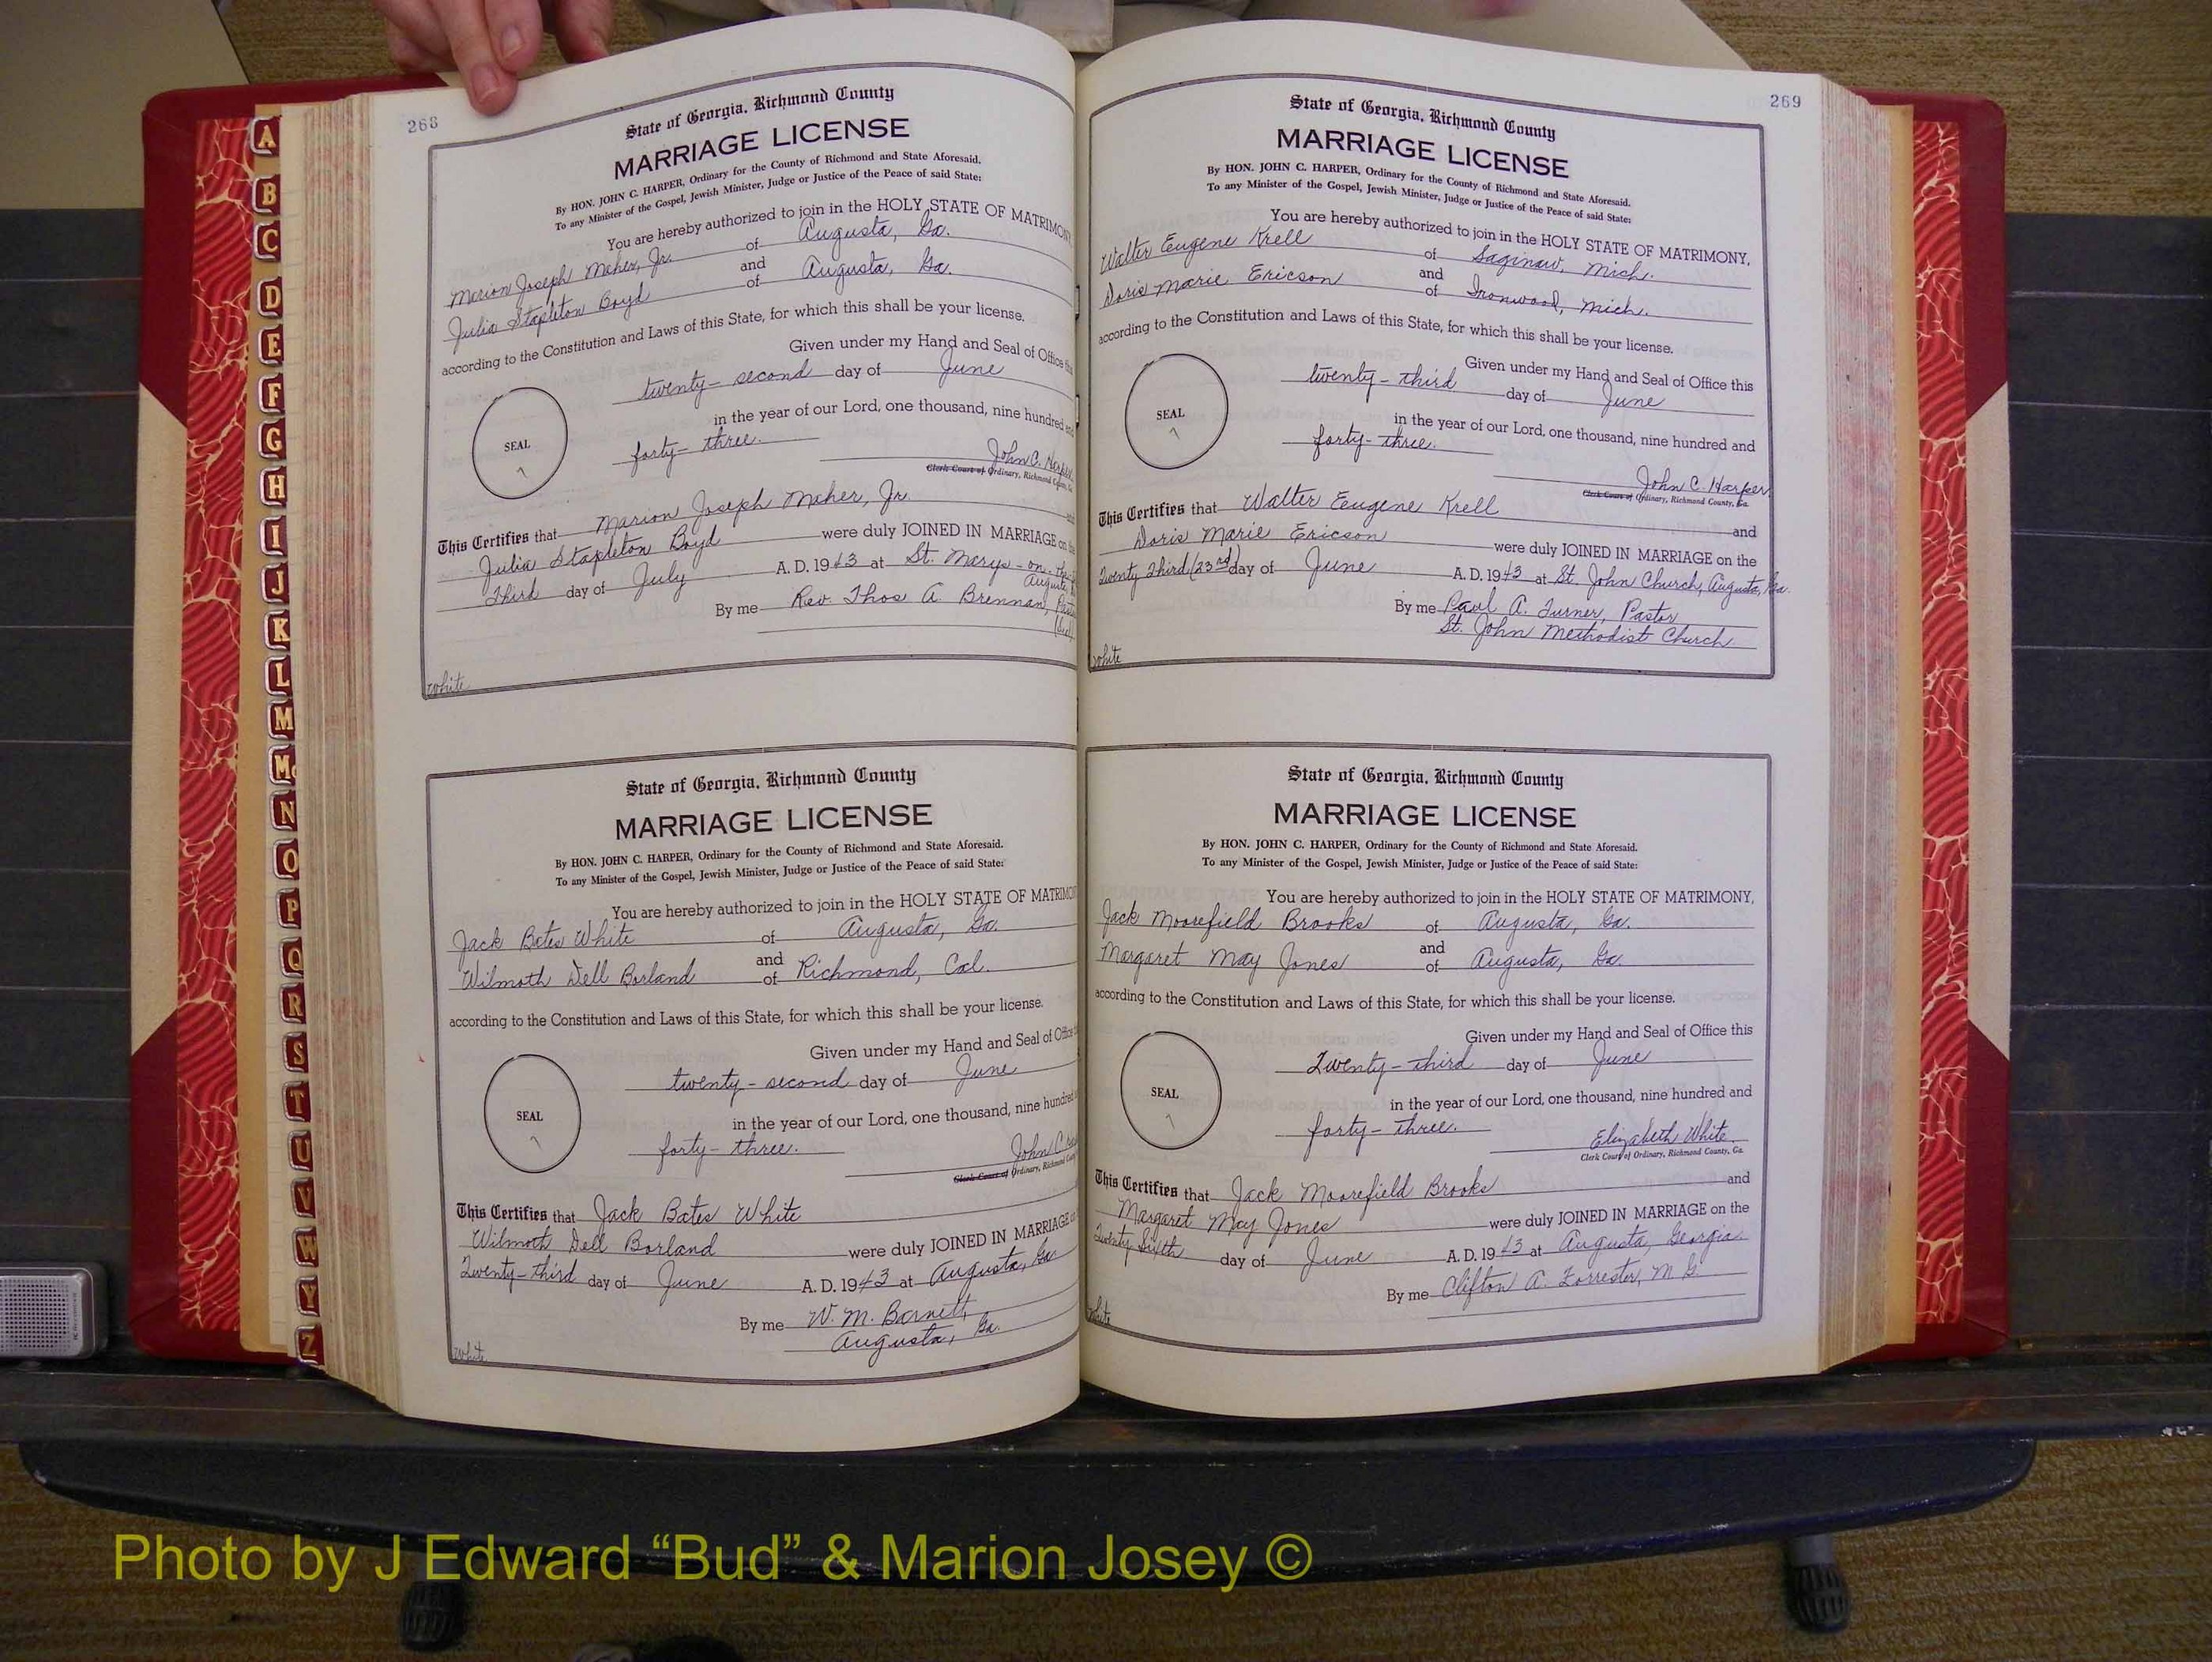 268
State of Georgia, Richmond County
MARRIAGE LICENSE
By HON. JOHN C. HARPER, Ordinary for the County of Richmond and State Aforesaid.
To any Minister of the Gospel, Jewish Minister, Judge or Justice of the Peace of said State:
You are hereby authorized to join in the HOLY STATE OF MATRIMONY
Marion Joseph Maher, Jr. of Augusta, Ga.
and
Julia Stapleton Boyd of Augusta, Ga.
according to the Constitution and Laws of this State, for which this shall be your license.
Given under my Hand and Seal of Office
twenty-second day of June
in the year of our Lord, one thousand, nine hundred
forty-three.
SEAL
John C. Harper
Clerk Court of Ordinary, Richmond
This Certifies that Marion Joseph Maher, Jr.
Julia Stapleton Boyd were duly JOINED IN MARRIAGE on
Third day of July A. D. 1943 at St. Marys-on-the
By me Rev. Thos A. Brennan,
White
State of Georgia, Richmond County
MARRIAGE LICENSE
By HON. JOHN C. HARPER, Ordinary for the County of Richmond and State Aforesaid.
To any Minister of the Gospel, Jewish Minister, Judge or Justice of the Peace of said State:
You are hereby authorized to join in the HOLY STATE OF
Jack Bates White of Augusta, Ga.
and
Wilmoth Dell Borland of Richmond, Cal.
according to the Constitution and Laws of this State, for which this shall be your license.
Given under my Hand and Seal of Office
twenty-second day of June
in the year of our Lord, one thousand, nine hundred
forty-three.
SEAL
John C.
Clerk Court of Ordinary, Richmond
This Certifies that Jack Bates White
Wilmoth Dell Borland were duly JOINED IN MARRIAGE
Twenty-third day of June A. D. 1943 at Augusta, Ga.
By me W. M. Barnett,
Augusta, Ga.
White
269
State of Georgia, Richmond County
MARRIAGE LICENSE
By HON. JOHN C. HARPER, Ordinary for the County of Richmond and State Aforesaid.
To any Minister of the Gospel, Jewish Minister, Judge or Justice of the Peace of said State:
You are hereby authorized to join in the HOLY STATE OF MATRIMONY,
Walter Eugene Krell of Saginaw, Mich.
and
Doris Marie Ericson of Ironwood, Mich.
according to the Constitution and Laws of this State, for which this shall be your license.
Given under my Hand and Seal of Office this
twenty-third day of June
in the year of our Lord, one thousand, nine hundred and
forty-three.
SEAL
John C. Harper
Clerk Court of Ordinary, Richmond County, Ga.
This Certifies that Walter Eugene Krell
and
Doris Marie Ericson were duly JOINED IN MARRIAGE on the
Twenty Third (23rd) day of June A. D. 1943 at St. John Church, Augusta, Ga.
By me Paul A. Turner, Pastor
St. John Methodist Church
White
State of Georgia, Richmond County
MARRIAGE LICENSE
By HON. JOHN C. HARPER, Ordinary for the County of Richmond and State Aforesaid.
To any Minister of the Gospel, Jewish Minister, Judge or Justice of the Peace of said State:
You are hereby authorized to join in the HOLY STATE OF MATRIMONY,
Jack Moorefield Brooks of Augusta, Ga.
and
Margaret May Jones of Augusta, Ga.
according to the Constitution and Laws of this State, for which this shall be your license.
Given under my Hand and Seal of Office this
Twenty-third day of June
in the year of our Lord, one thousand, nine hundred and
forty-three.
SEAL
Elizabeth White
Clerk Court of Ordinary, Richmond County, Ga.
This Certifies that Jack Moorefield Brooks and
Margaret May Jones were duly JOINED IN MARRIAGE on the
Twenty Sixth day of June A. D. 1943 at Augusta, Georgia.
By me Clifton A. Forrester, M. G.
White
A
B
C
D
E
F
G
H
I
J
K
L
M
Mc
N
O
P
Q
R
S
T
U
V
W
Y
Z
Photo by J Edward “Bud” & Marion Josey ©